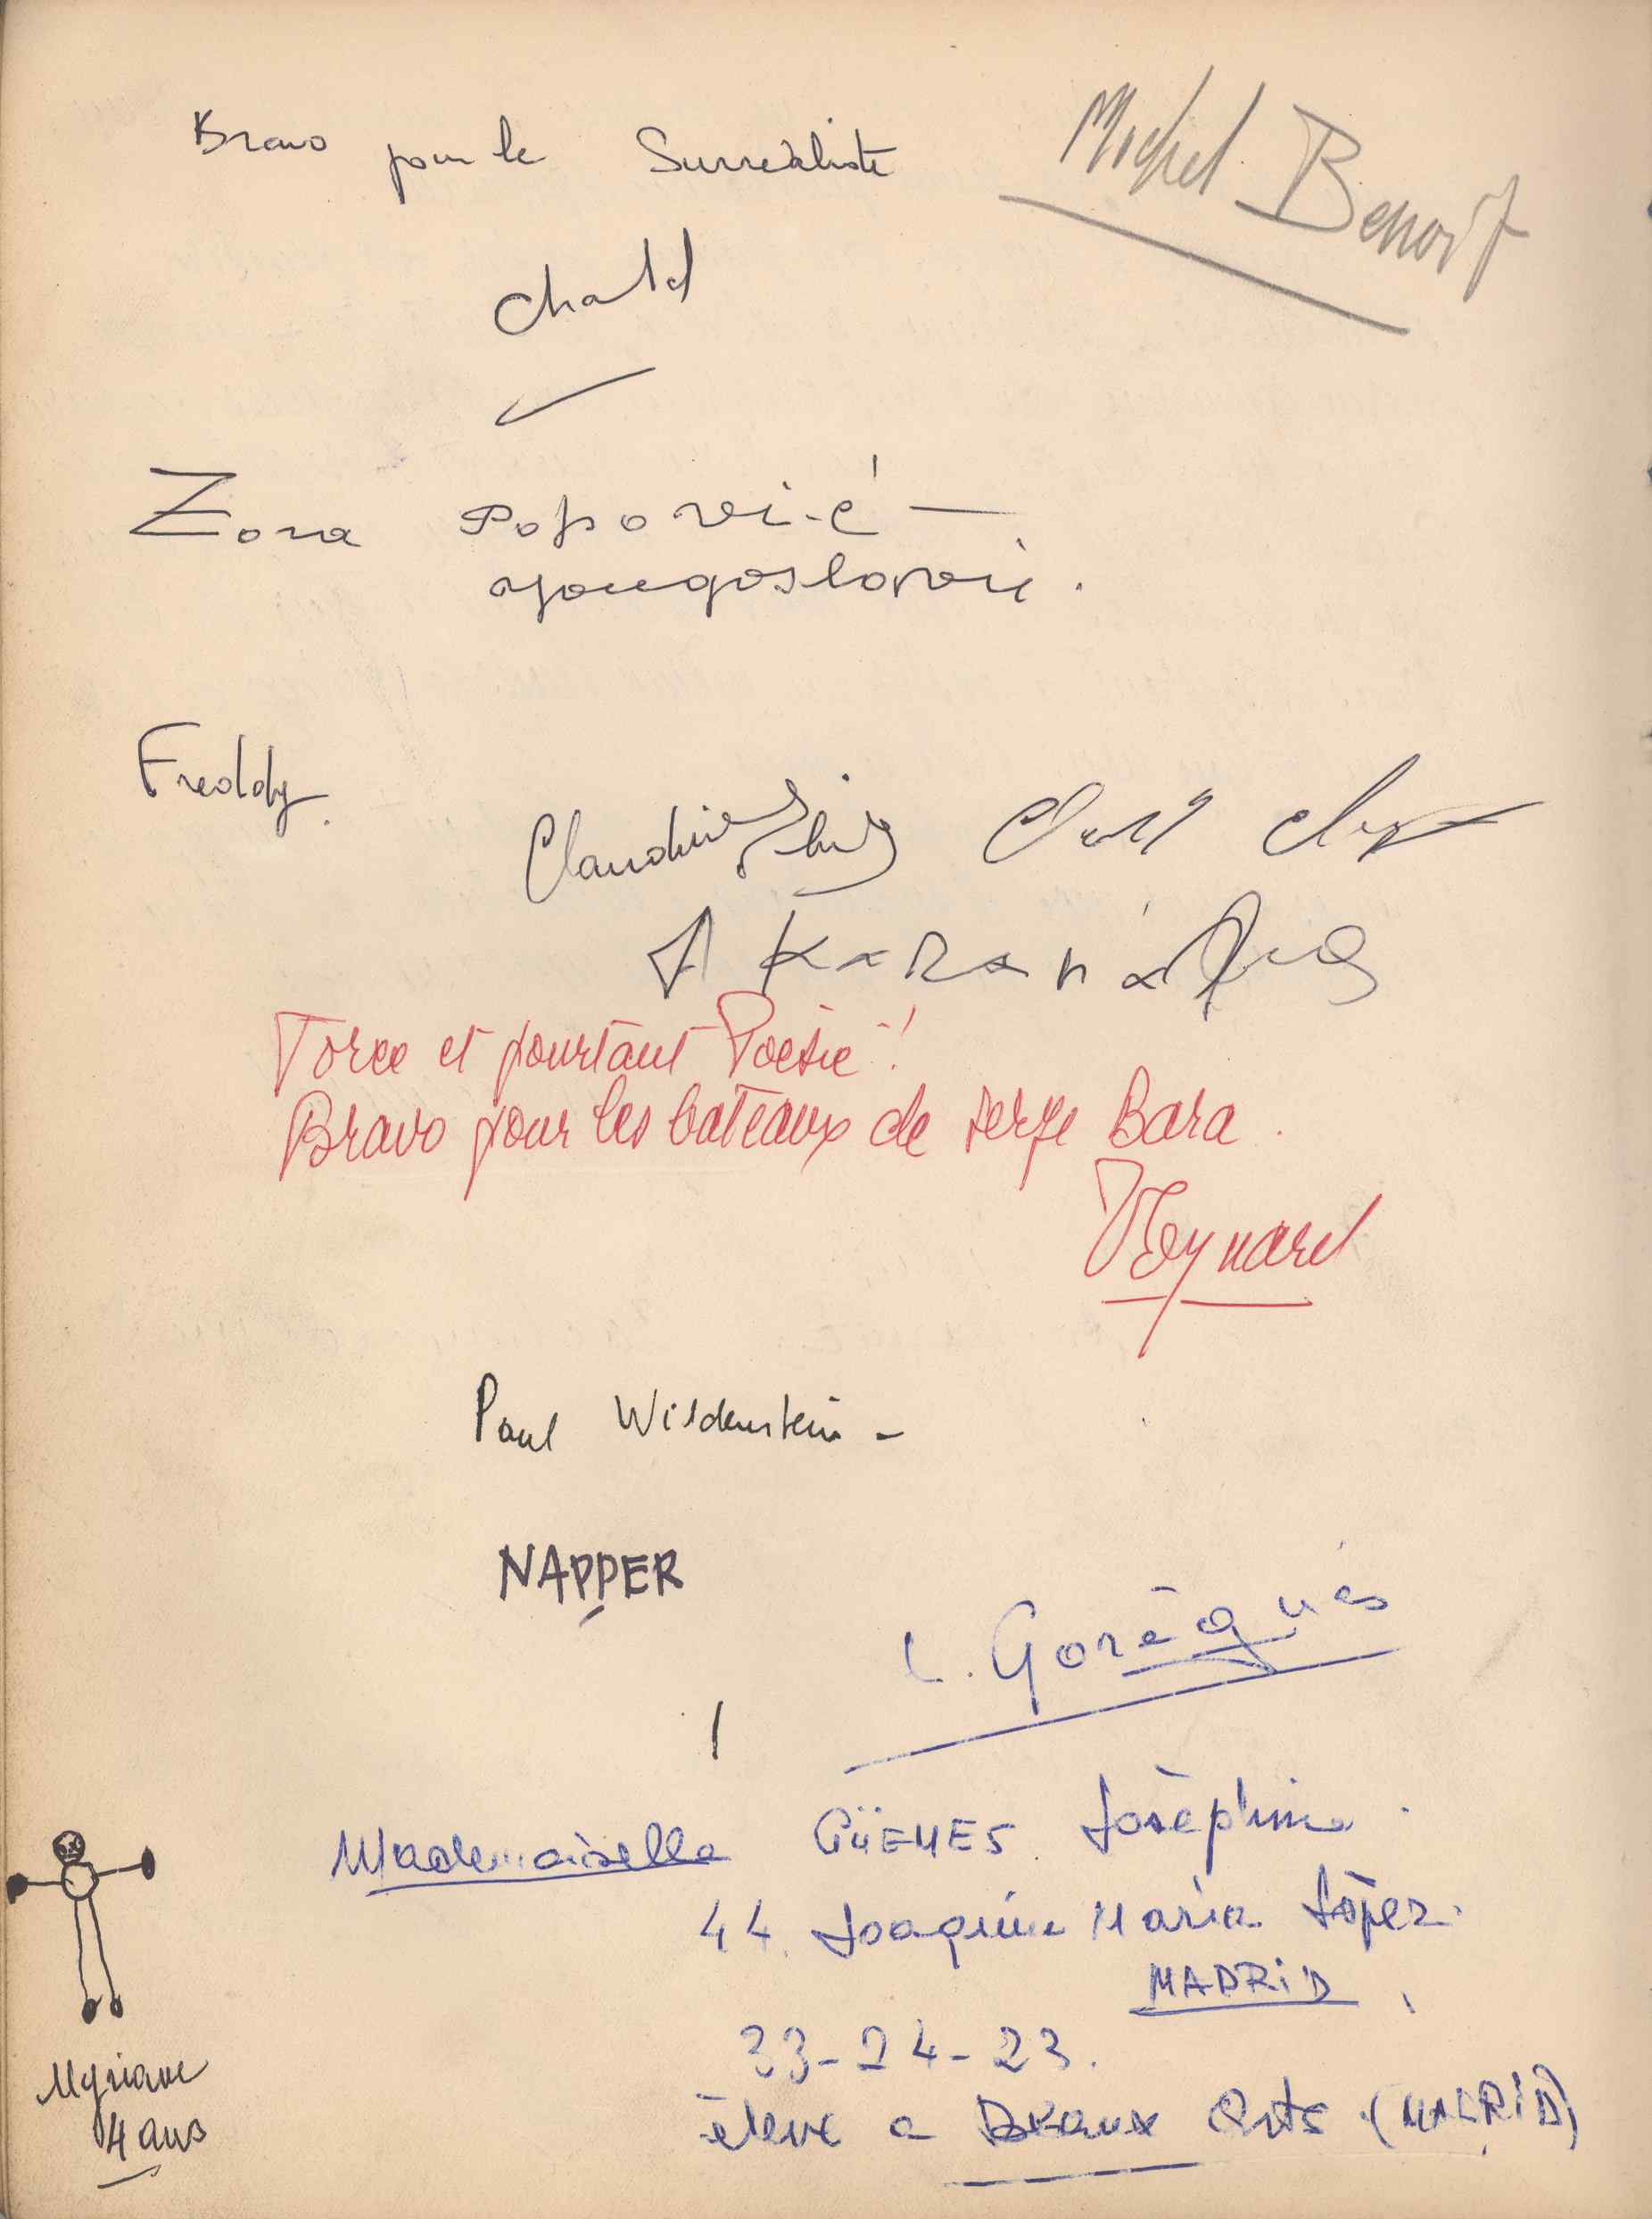 Bravo pour le Surréaliste
Michel Benoit
Zora Popović —
yougoslavie.
Freddy.
Claudine
Force et pourtant Poésie !
Bravo pour les bateaux de Serge Bara.
Paul Wildenstein -
NAPPER
L. Gorègués
Mademoiselle GÜEMES Josèphine
44 Joaquin Maria Lòpez.
MADRiD
33-24-23.
élève a Beaux Arts (MADRiD)
Myriane
4 ans